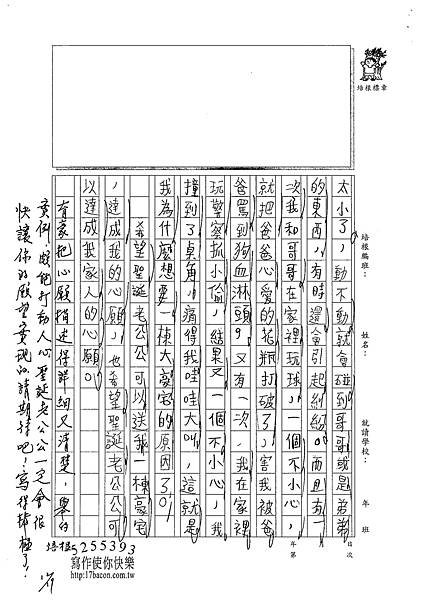 培根標章
培根編班：
姓名：
就讀學校：
年
班
年第
次
太小了，動不動就會碰到哥哥或是弟弟
的東西，有時還會引起紛紛。而且有一
次我和哥哥在家裡玩球，一個不小心，
就把爸爸心愛的花瓶打破了，害我被爸
爸罵到狗血淋頭，又有一次，我在家裡
玩警察抓小偷，結果又一個不小心，我
撞到了桌角，痛得我哇哇大叫，這就是
我為什麼想要一棟大豪宅的原因了。
希望聖誕老公公可以送我一棟豪宅
，達成我的心願，也希望聖誕老公公可
以達成我家人的心願。
有意把心願描述得詳細又清楚，舉的
實例，頗能打動人心，聖誕老公公一定會很
快讓你的願望實現的，請期待吧！寫得棒極了！
培根5255393
寫作使你快樂
http://17bacon.com.tw/